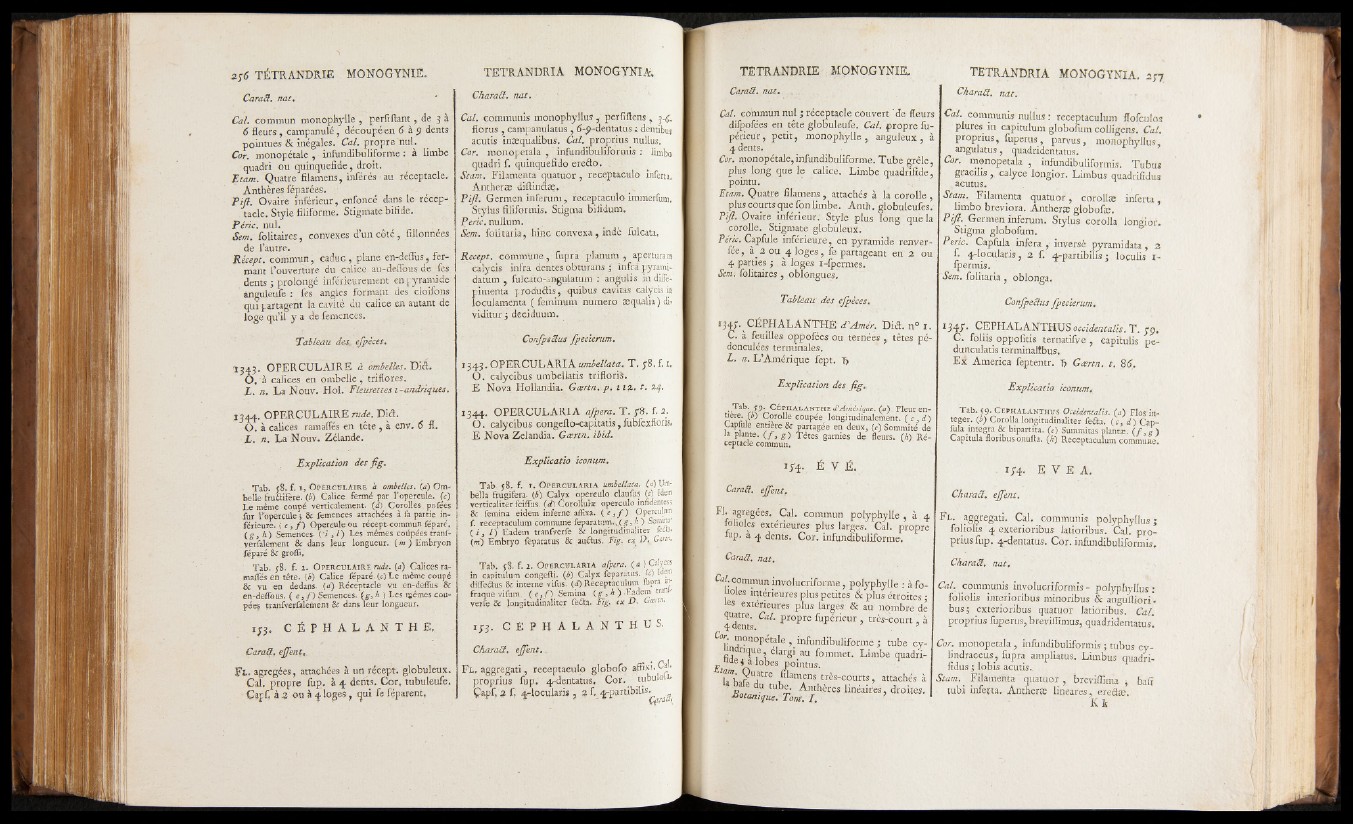 256 TÉTRANDRIE MONOGYNIE.
Caract. nat.
Cal. commun monophylle, persistant, de 3 à
6 fleurs, campanulé, découpé en 6 à 9 dents
pointues & inégales. Cal. propre nul.
Cor. monopétale, infundibuliforme : à limbe
quadri ou quinquefide, droit.
Etam. Quatre filamens, inférés au réceptacle.
Anthères séparées.
Pist. Ovaire inférieur, enfoncé dans le récep-
tacle. Style filiforme. Stigmate bifide.
Péric. nul.
Sem. solitaires, convexes d'un côté, sillonnées
de l'autre.
Récept. commun, caduc, plane en-dessus, fer-
mant l'ouverture du calice au-dessous de ses
dents ; prolongé inférieurement en pyramide
anguleuse : ses angles formant des cloisons
qui partagent la cavité du calice en autant de
loge qu'il y a de semences.
Tableau des espèces.
1343. OPERCULAIRE à ombelles. Dict.
O. à calices en ombelle, triflores.
L. n. La Nouv. Hol. Fleurettes 1-andriques.
1344. OPERCULAIRE rude. Dict.
O. à calices ramassés en tête, à env. 6 fl.
L. n. La Nouv. Zélande.
Explication des fig.
Tab. 58. f. 1, OPERCULAIRE à ombelles. (a) Om-
belle fructifère. (b) Calice fermé par l'opercule. (c)
Le même coupé verticalement. (d) Corolles posées
sur l'opercule ; & semences attachées à sa partie in-
férieure. (e, f) Opercule ou récept commun séparé.
(g, h) Semences (i, l) Les mêmes coupées trans-
versalement & dans leur longueur. (m) Embryon
séparé & grossi.
Tab. 58. f. 2. OPERCULAIRE rude. (a) Calices ra-
massés en tête. (b) Calice séparé (c) Le même coupé
& vu en dedans. (d) Réceptacle vu en-dessus &
en-dessous. (e, f) Semences. (g, h) Les mêmes cou-
pées transversalement & dans leur longueur.
153. CÉPHALANTHE.
Caract. essent.
FL. agregées, attachées à un récept. globuleux.
Cal. propre sup. à 4 dents. Cor. tubuleuse.
Capf. à 2 ou à 4 loges, qui se séparent.
TETRANDRIA MONOGYNIA.
Charact. nat.
Cal. communis monophyllus, persistens, 3-6-
florus, campanulatus, 6-9-dentatus : dentibus
acutis inæqualibus. Cal. proprius nullus.
Cor. monopetala, infundibuliformis : limbo
quadri s. quinquefido erecto.
Stam. Filamenta quatuor, receptaculo inserta.
Antheræ distinctæ.
Pist. Germen inferum, receptaculo immersum.
Stylus filiformis. Stigma bifidum.
Peric. nullum.
Sem. solitaria, hinc convexa, indè sulcata.
Recept. commune, supra planum, aperturam
calycis infra dentes obturans ; infra pyrami-
datum, sulcato-angulatum : angulis in disse-
pimenta productis, quibus cavitas calycis in
loculamenta (seminum numero æqualia) di-
viditur ; deciduum.
Conspectus specierum.
1343. OPERCULARIA umbellata. T. 58. f. 1.
O. calycibus umbellatis trifloris.
E Nova Hollandia. Gærtn. p. 112. t. 24.
1344. OPERCULARIA aspera. T. 58. f. 2.
O. calycibus congesto-capitatis, subsexfloris.
E Nova Zelandia. Gærtn. ibid.
Explicatio iconum.
Tab. 58. f. 1. OPERCULARIA umbellata. (a) Um-
bella frugifera. (b) Calyx operculo clausus (c) Idem
verticaliter scissus. (d) Corollulæ operculo insidentes
& semina eidem inferne affixa. (e, f) Operculum
s. receptaculum commune separatum. (g, h) Semina
(i, l) Eadem transverse & longitudinaliter secta.
(m) Embryo separatus & auctus. Fig. ex D. Gærtn.
Tab. 58. f. 2. OPERCULARIA aspera. (a) Calyces
in capitulum congesti. (b) Calyx separatus. (c) Idem
dissectus & interne visus. (d) Receptaculum supra in-
fraque visum. (e, f) Semina (g, h) Eadem trans-
verse & longitudinaliter secta. Fig. ex D. Gærtn.
153. CEPHALANTHUS.
Charact. essent.
FL. aggregati, receptaculo globoso affixi. Cal.
proprius sup. 4-dentatus. Cor. tubulosa.
Capf. 2 s. 4-locularis, 2 s. 4-partibilis.
Caract.
TETRANDRIE MONOGYNIE.
Caract. nat.
Cal. commun nul ; réceptacle couvert de fleurs
disposées en tête globuleuse. Cal. propre su-
périeur, petit, monophylle, anguleux, à
4 dents.
Cor. monopétale, infundibuliforme. Tube grêle,
plus long que le calice. Limbe quadrifide,
pointu.
Etam. Quatre filamens, attachés à la corolle,
plus courts que son limbe. Anth. globuleuses.
Pist. Ovaire inférieur. Style plus long que la
corolle. Stigmate globuleux.
Péric. Capsule inférieure, en pyramide renver-
sée, à 2 ou 4 loges, se partageant en 2 ou
4 parties ; à loges 1-spermes.
Sem. solitaires, oblongues.
Tableau des espèces.
1345. CÉPHALANTHE d'Amér. Dict. n° 1.
C. à feuilles opposées ou ternées, têtes pé-
donculées terminales.
L. n. L'Amérique sept. ♄
Explication des fig.
Tab. 59. CÉPHALANTHE d'Amérique. (a) Fleur en-
tière. (b) Corolle coupée longitudinalement. (c, d)
Capsule entière & partagée en deux, (e) Sommité de
la plante. (f, g) Têtes garnies de fleurs. (h) Ré-
ceptacle commun.
154. ÉVÉ.
Caract. essent.
Fl. agregées. Cal. commun polyphylle, à 4
folioles extérieures plus larges. Cal. propre
sup. à 4 dents. Cor. infundibuliforme.
Caract. nat.
Cal. commun involucriforme, polyphylle : à fo-
lioles intérieures plus petites & plus étroites ;
les extérieures plus larges & au nombre de
quatre. Cal. propre supérieur, très-court, à
4 dents.
Cor. monopétale, infundibuliforme ; tube cy-
lindrique, élargi au sommet. Limbe quadri-
fide ; à lobes pointus.
Etam. Quatre filamens très-courts, attachés à
la base du tube. Anthères linéaires, droites.
Botanique. Tom. I.
TETRANDRIA MONOGYNIA. 257
Charact. nat.
Cal. communis nullus : receptaculum flosculos
plures in capitulum globosum colligens. Cal.
proprius, superus, parvus, monophyllus,
angulatus, quadridentatus.
Cor. monopetala, infundibuliformis. Tubus
gracilis, calyce longior. Limbus quadrifidus
acutus.
Stam. Filamenta quatuor, corollæ inserta,
limbo breviora. Antheræ globosæ.
Pist. Germen inferum. Stylus corolla longior.
Stigma globosum.
Peric. Capsula infera, inversè pyramidata, 2
s. 4-locularis, 2 s. 4-partibilis ; loculis 1-
spermis.
Sem. solitaria, oblonga.
Conspectus specierum.
1345. CEPHALANTHUS occidentalis. T. 59.
C. foliis oppositis ternatisve, capitulis pe-
dunculatis terminalibus.
Ex America septentr. ♄ Gærtn. t. 86.
Explicatio iconum.
Tab. 59. CEPHALANTHUS Occidentalis. (a) Flos in-
teger. (b) Corolla longitudinaliter secta. (c, d) Cap-
sula integra & bipartita. (e) Summitas plantæ. (f, g)
Capitula floribus onusta. (h) Receptaculum commune.
154. EVEA.
Charact. essent.
FL. aggregati. Cal. communis polyphyllus ;
foliolis 4 exterioribus latioribus. Cal. pro-
prius sup. 4-dentatus. Cor. infundibuliformis.
Charact. nat.
Cal. communis involucriformis - polyphyllus :
foliolis interioribus minoribus & angustiori-
bus ; exterioribus quatuor latioribus. Cal.
proprius superus, brevissimus, quadridentatus.
Cor. monopetala, infundibuliformis ; tubus cy-
lindraceus, supra ampliatus. Limbus quadri-
fidus ; lobis acutis.
Stam. Filamenta quatuor, brevissima, basi
tubi inserta. Antheræ lineares, erectæ.
K k